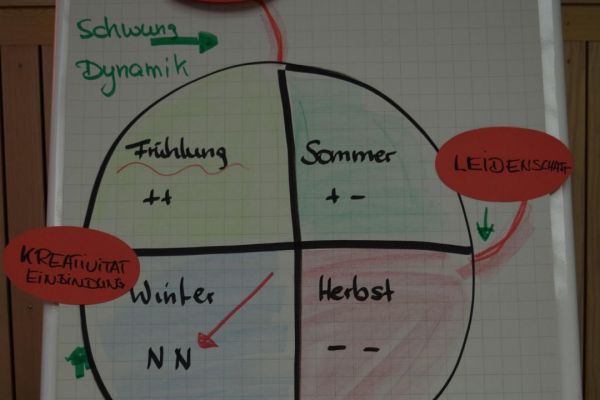 Schwung
Dynamik
Frühlung
++
Sommer
+ -
LEIDENSCHAFT
KREATIVITÄT
EINBINDUNG
Winter
NN
Herbst
- -